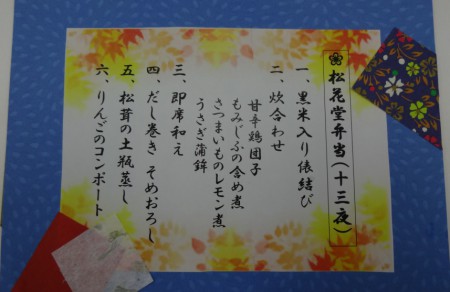 ❀松花堂弁当(十三夜)
一、黒米入り俵結び
二、炊合わせ
甘辛鶏団子
もみじふの含め煮
さつまいものレモン煮
うさぎ蒲鉾
三、即席和え
四、だし巻き そめおろし
五、松茸の土瓶蒸し
六、りんごのコンポート